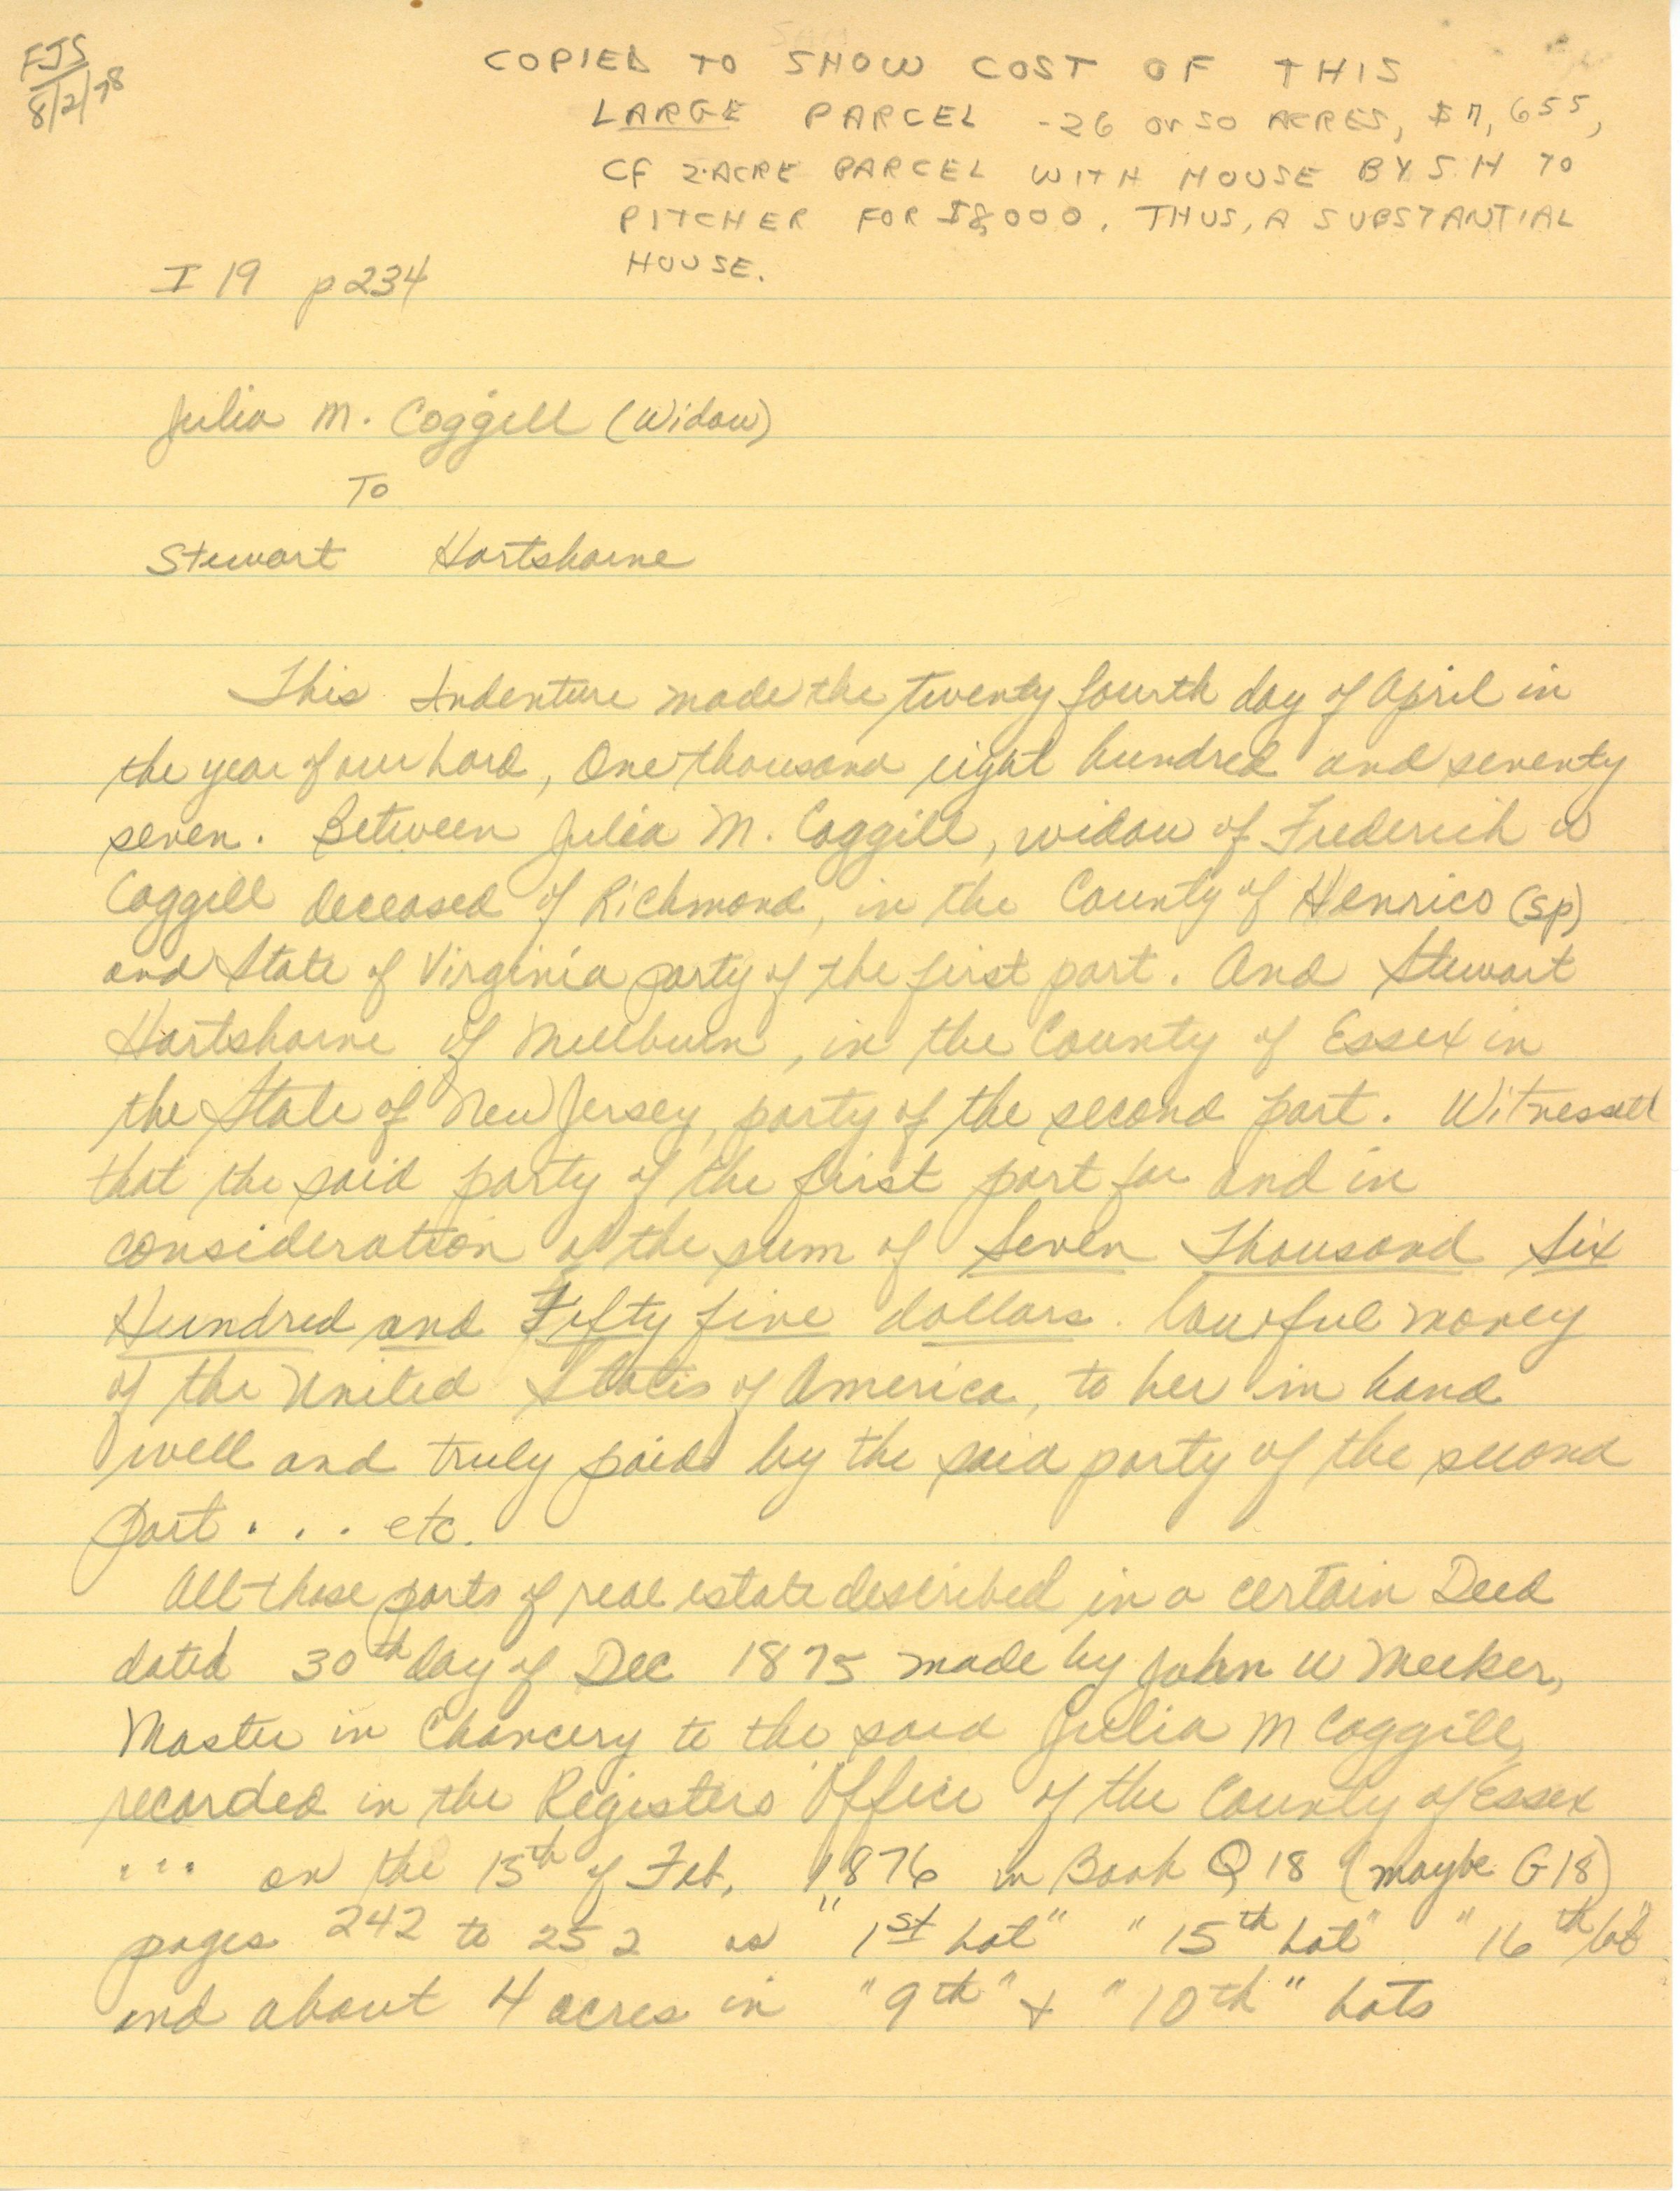 FJS
8/2/78
COPIED TO SHOW COST OF THIS
LARGE PARCEL - 26 or so ACRES, $7,655,
CF 2-ACRE PARCEL WITH HOUSE BY S H TO
PITCHER FOR $8,000. THUS, A SUBSTANTIAL
HOUSE.
I 19 p 234
Julia M. Coggill (Widow)
To
Stewart Hartshorne
This Indenture made the twenty fourth day of April in
the year of our Lord, One thousand eight hundred and seventy
seven. Between Julia M. Coggill, widow of Frederick W
Coggill deceased of Richmond, in the County of Henrico (sp)
and State of Virginia party of the first part. And Stewart
Hartshorne of Millburn, in the County of Essex in
the State of New Jersey, party of the second part. Witnesseth
that the said party of the first part for and in
consideration of the sum of Seven Thousand Six
Hundred and Fifty five dollars. Lawful money
of the United States of America, to her in hand
well and truly paid by the said party of the second
part . . . etc.
All those parts of real estate described in a certain Deed
dated 30th day of Dec 1875 made by John W Meeker,
Master in Chancery to the said Julia M Coggill,
recorded in the Registers Office of the County of Essex
... on the 15th of Feb, 1876 in Book Q 18 (maybe G 18)
pages 242 to 252 as "1st Lot" "15th Lot" "16th Lot"
and about 4 acres in "9th" + "10th" Lots